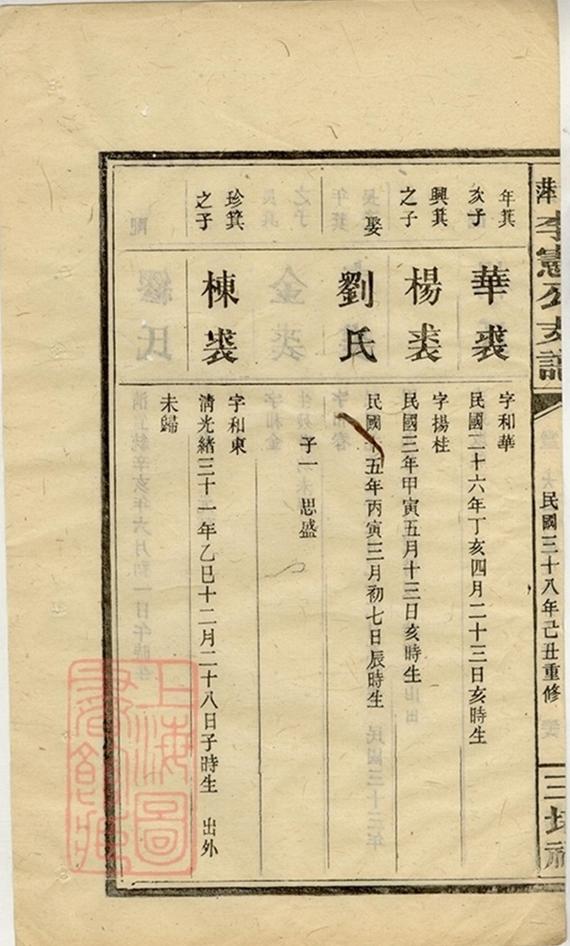 憲公支譜
民國三十八年己丑重修
年箕
次子
華裘
字和華
民國三十六年丁亥四月二十三日亥時生
興箕
之子
楊裘
字揚桂
民國三年甲寅五月十三日亥時生
娶
劉氏
民國十五年丙寅三月初七日辰時生
子一 思盛
珍箕
之子
棟裘
字和東
清光緒三十一年乙巳十二月二十八日子時生 出外
未歸
上海圖
書館藏